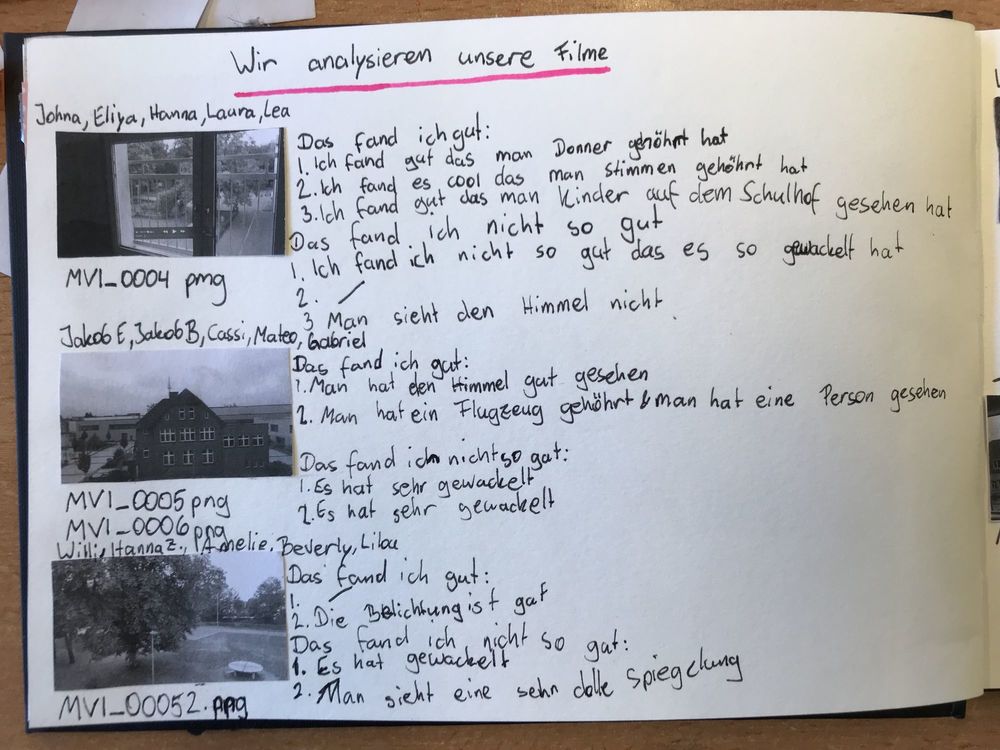 Wir analysieren unsere Filme
Johna, Eliya, Hanna, Laura, Lea
Das fand ich gut:
1. Ich fand gut das man Donner gehöhrt hat
2. Ich fand es cool das man stimmen gehöhrt hat
3. Ich fand gut das man Kinder auf dem Schulhof gesehen hat
Das fand ich nicht so gut
1. Ich fand ich nicht so gut das es so gewackelt hat
2. /
3 Man sieht den Himmel nicht
MVI_0004 pmg
Jakob E, Jakob B, Cassi, Mateo, Gabriel
Das fand ich gut:
1. Man hat den Himmel gut gesehen
2. Man hat ein Flugzeug gehöhrt & man hat eine Person gesehen
Das fand ich nicht so gut:
1. Es hat sehr gewackelt
2. Es hat sehr gewackelt
MVI_0005 png
MVI_0006 png
Willi, Hanna Z., Amelie, Beverly, Lilou
Das fand ich gut:
1. /
2. Die Belichtung ist gut
Das fand ich nicht so gut:
1. Es hat gewackelt
2. Man sieht eine sehn dolle Spiegelung
MVI_00052. png